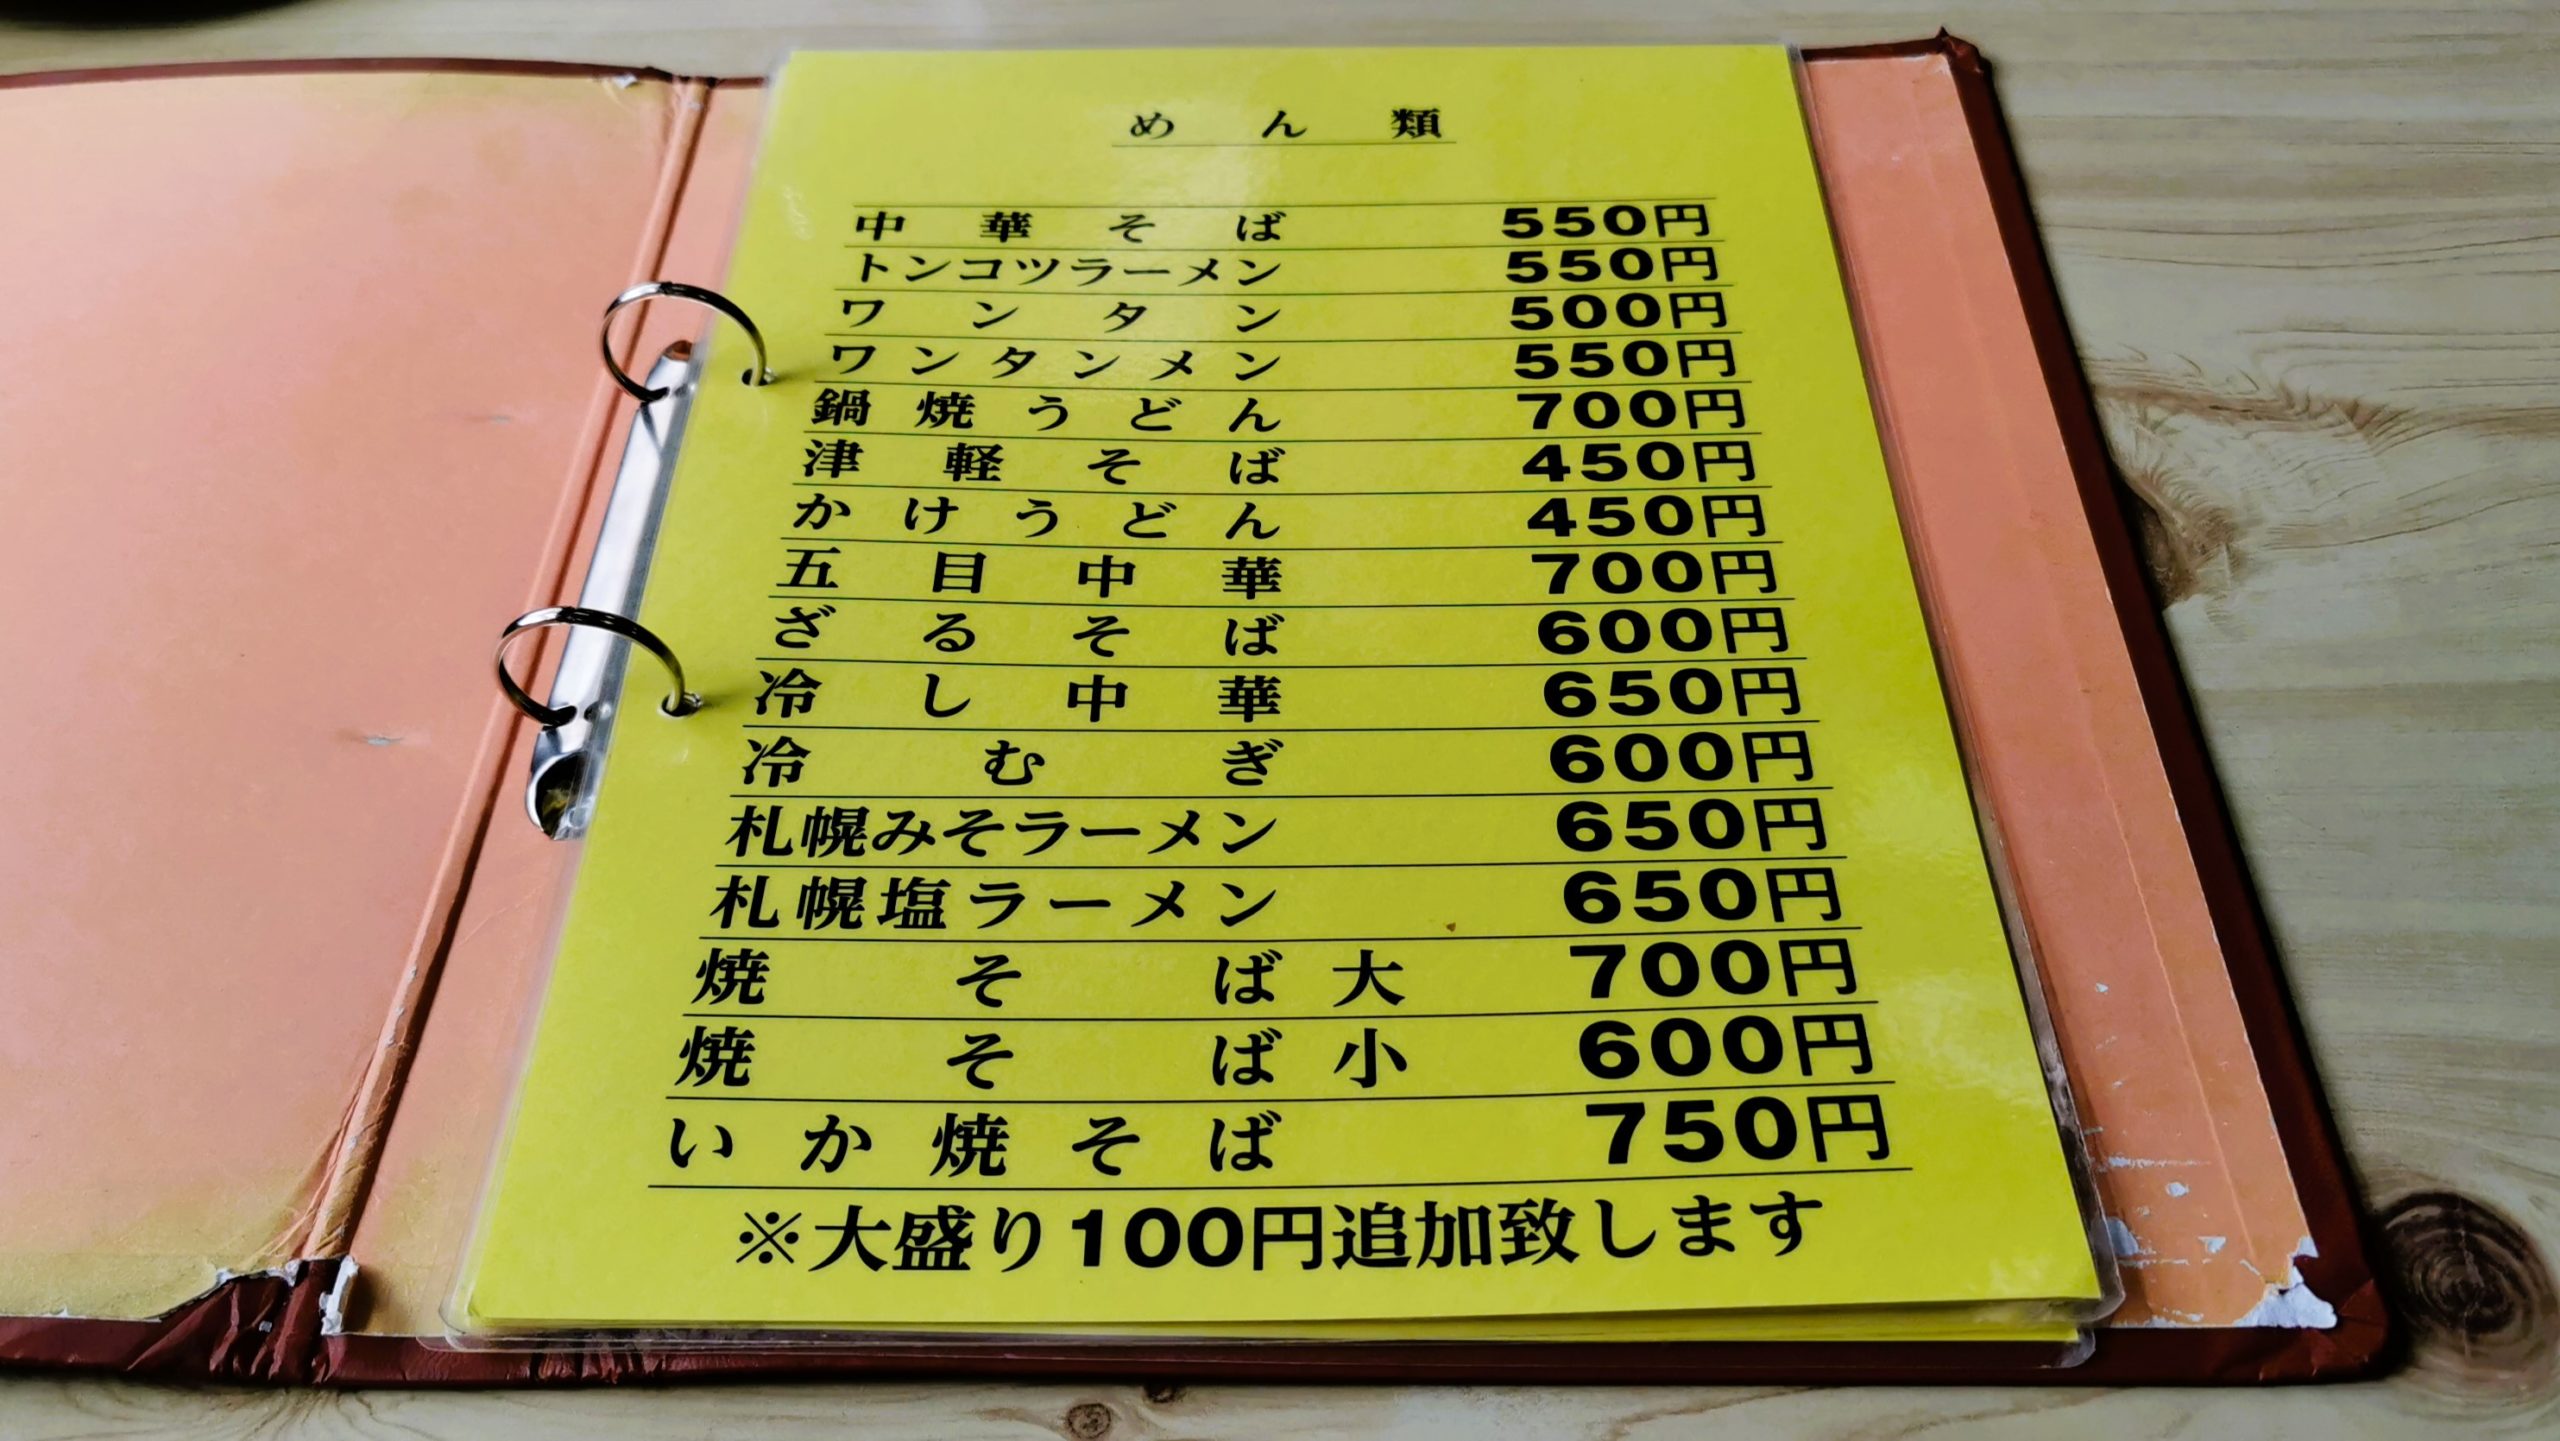 めん類
中華そば 550円
トンコツラーメン 550円
ワンタン 500円
ワンタンメン 550円
鍋焼うどん 700円
津軽そば 450円
かけうどん 450円
五目中華 700円
ざるそば 600円
冷し中華 650円
冷むぎ 600円
札幌みそラーメン 650円
札幌塩ラーメン 650円
焼そば大 700円
焼そば小 600円
いか焼そば 750円
※大盛り100円追加致します